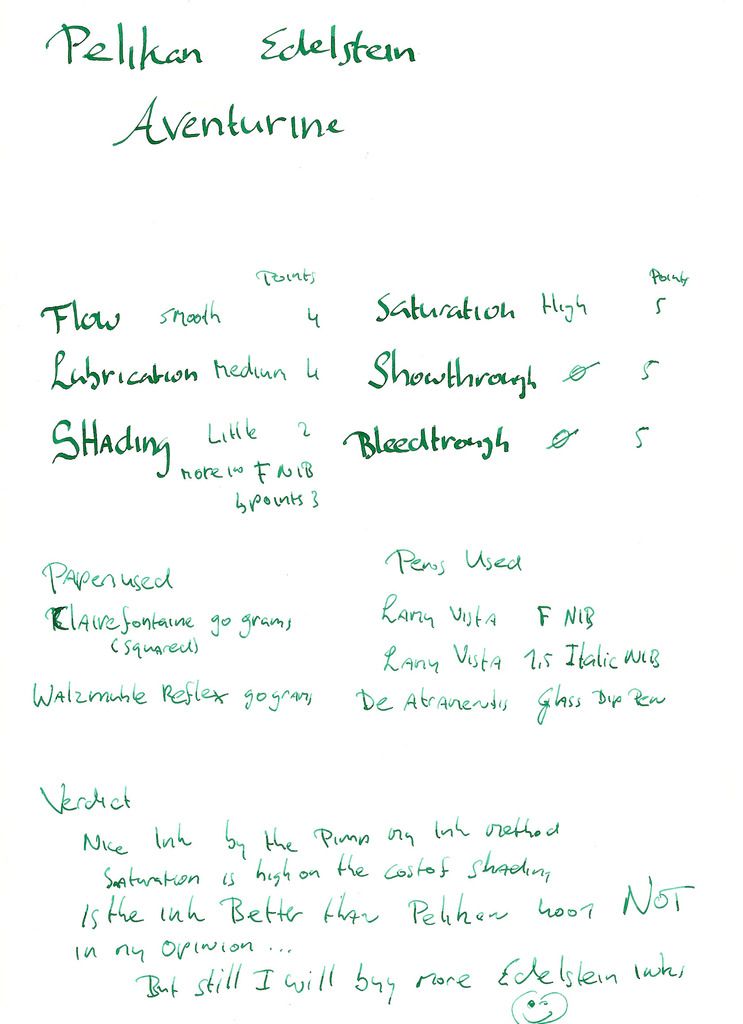 Pelikan Edelstein
Aventurine
Points
Points
Flow smooth 4
Saturation High 5
Lubrication Medium 4
Showthrough ∅ 5
SHading Little 2
Bleedtrough ∅ 5
more in F NIB
↳ points 3
Paper used
Pens Used
Clairefontaine 90 grams
(squared)
Lamy Vista F NIB
Lamy Vista 1,5 Italic NIB
Walzmuhle Reflex 90 grams
De Atramentis Glass Dip Pen
Verdict
Nice Ink by the Pimp my Ink method
Saturation is high on the cost of shading
Is the ink Better than Pelikan 4001 NOT
in my opinion ...
But still I will buy more Edelstein inks